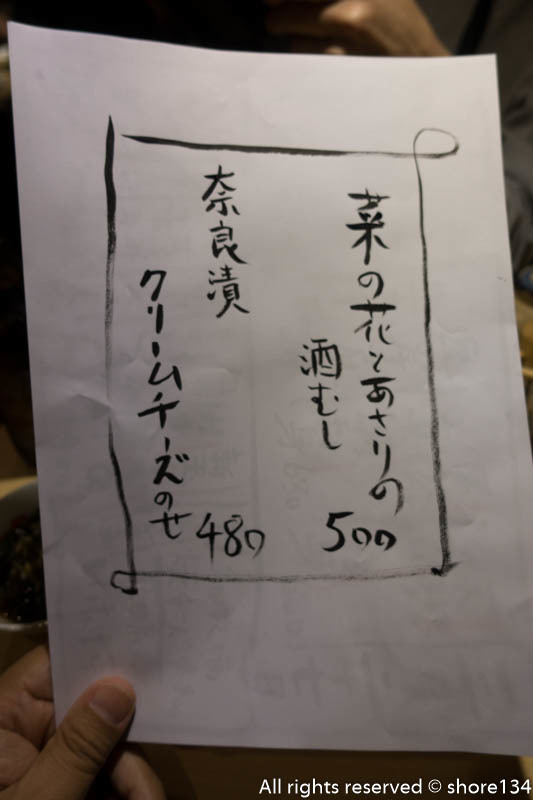 菜の花とあさりの
酒むし
500
奈良漬
クリームチーズのせ
480
All rights reserved © shore134